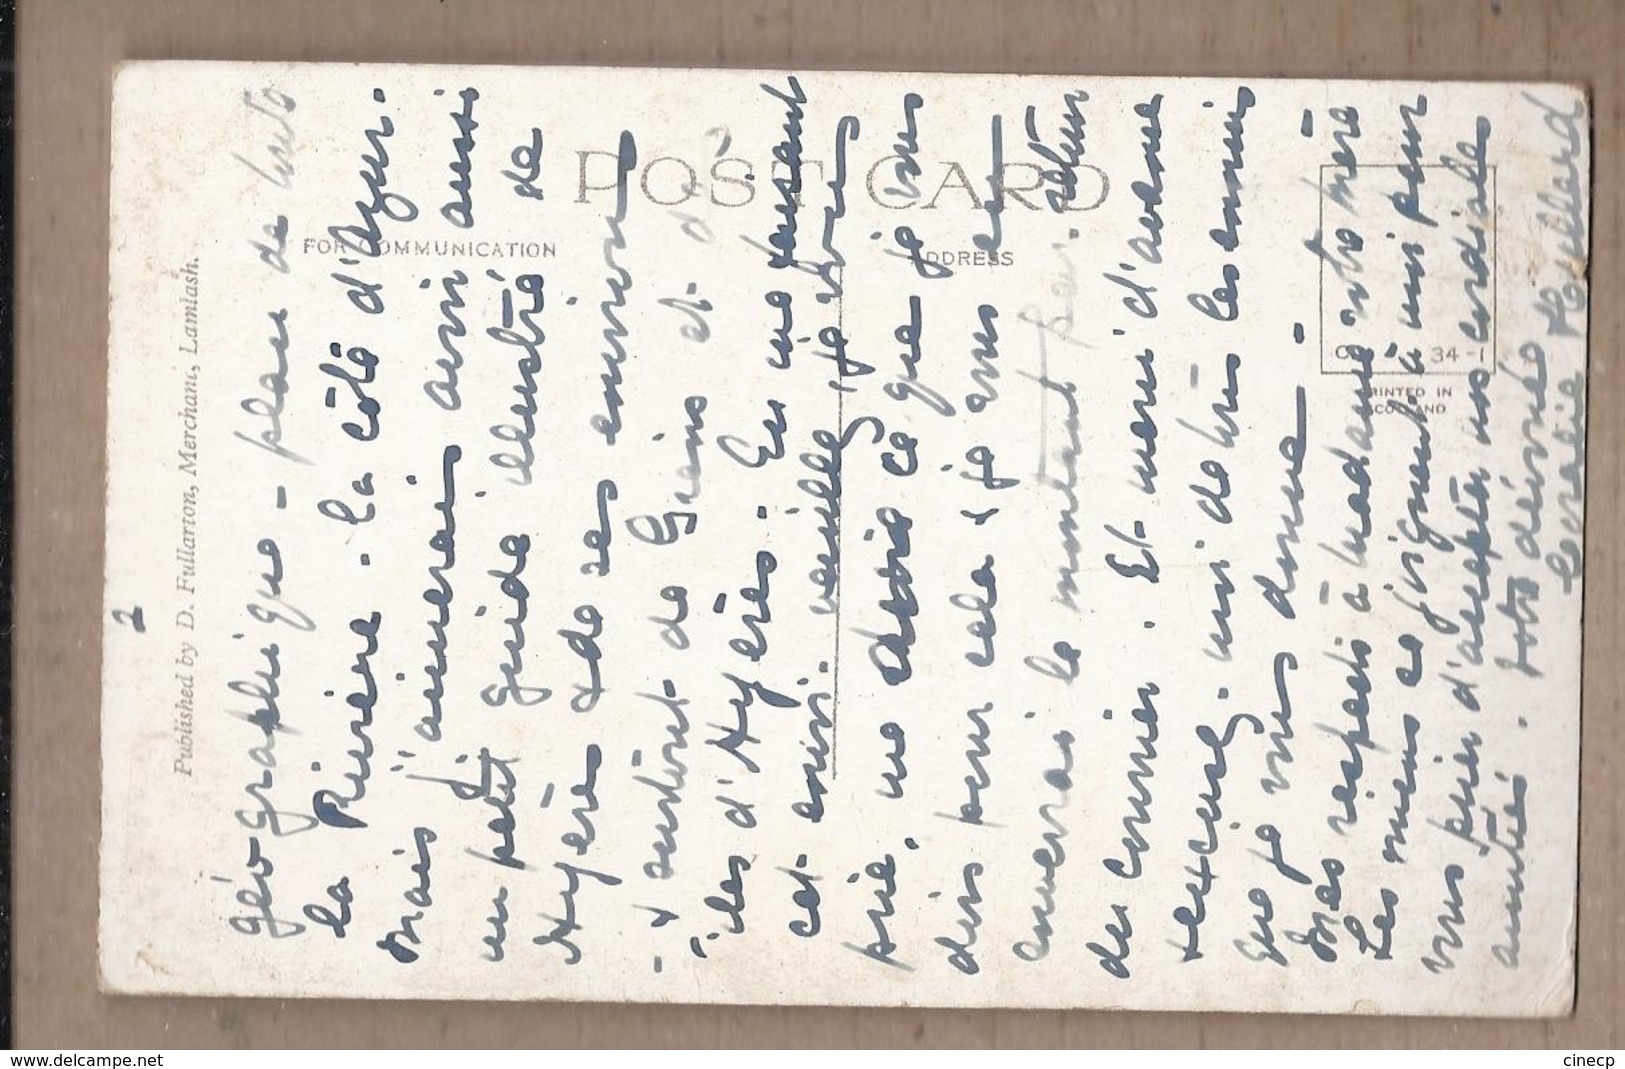 2
Published by D. Fullarton, Merchant, Lamlash.
POST CARD
FOR COMMUNICATION
ADDRESS
34-1
PRINTED IN
SCOTLAND
géographique - plan de toute
la Rivière - la côte d'Azur.
Mais j'aimerais avoir aussi
un petit guide illustré de
Hyères & de ses environs
- & surtout de Giens et d
îles d'Hyères. En me faisant
cet envoi. veuillez, je vous
prie, me dire ce que je vous
dois pour cela & je vous en
enverrai le montant par retour
du courrier. Et merci d'avance
& excusez-moi de tous les ennuis
que je vous donne.
Mes respects à Madame votre mère
Les miens se joignent à moi pour
vous prier d'accepter nos cordiales
amitiés. votre dévouée
Hollard
cinecp
www.delcampe.net